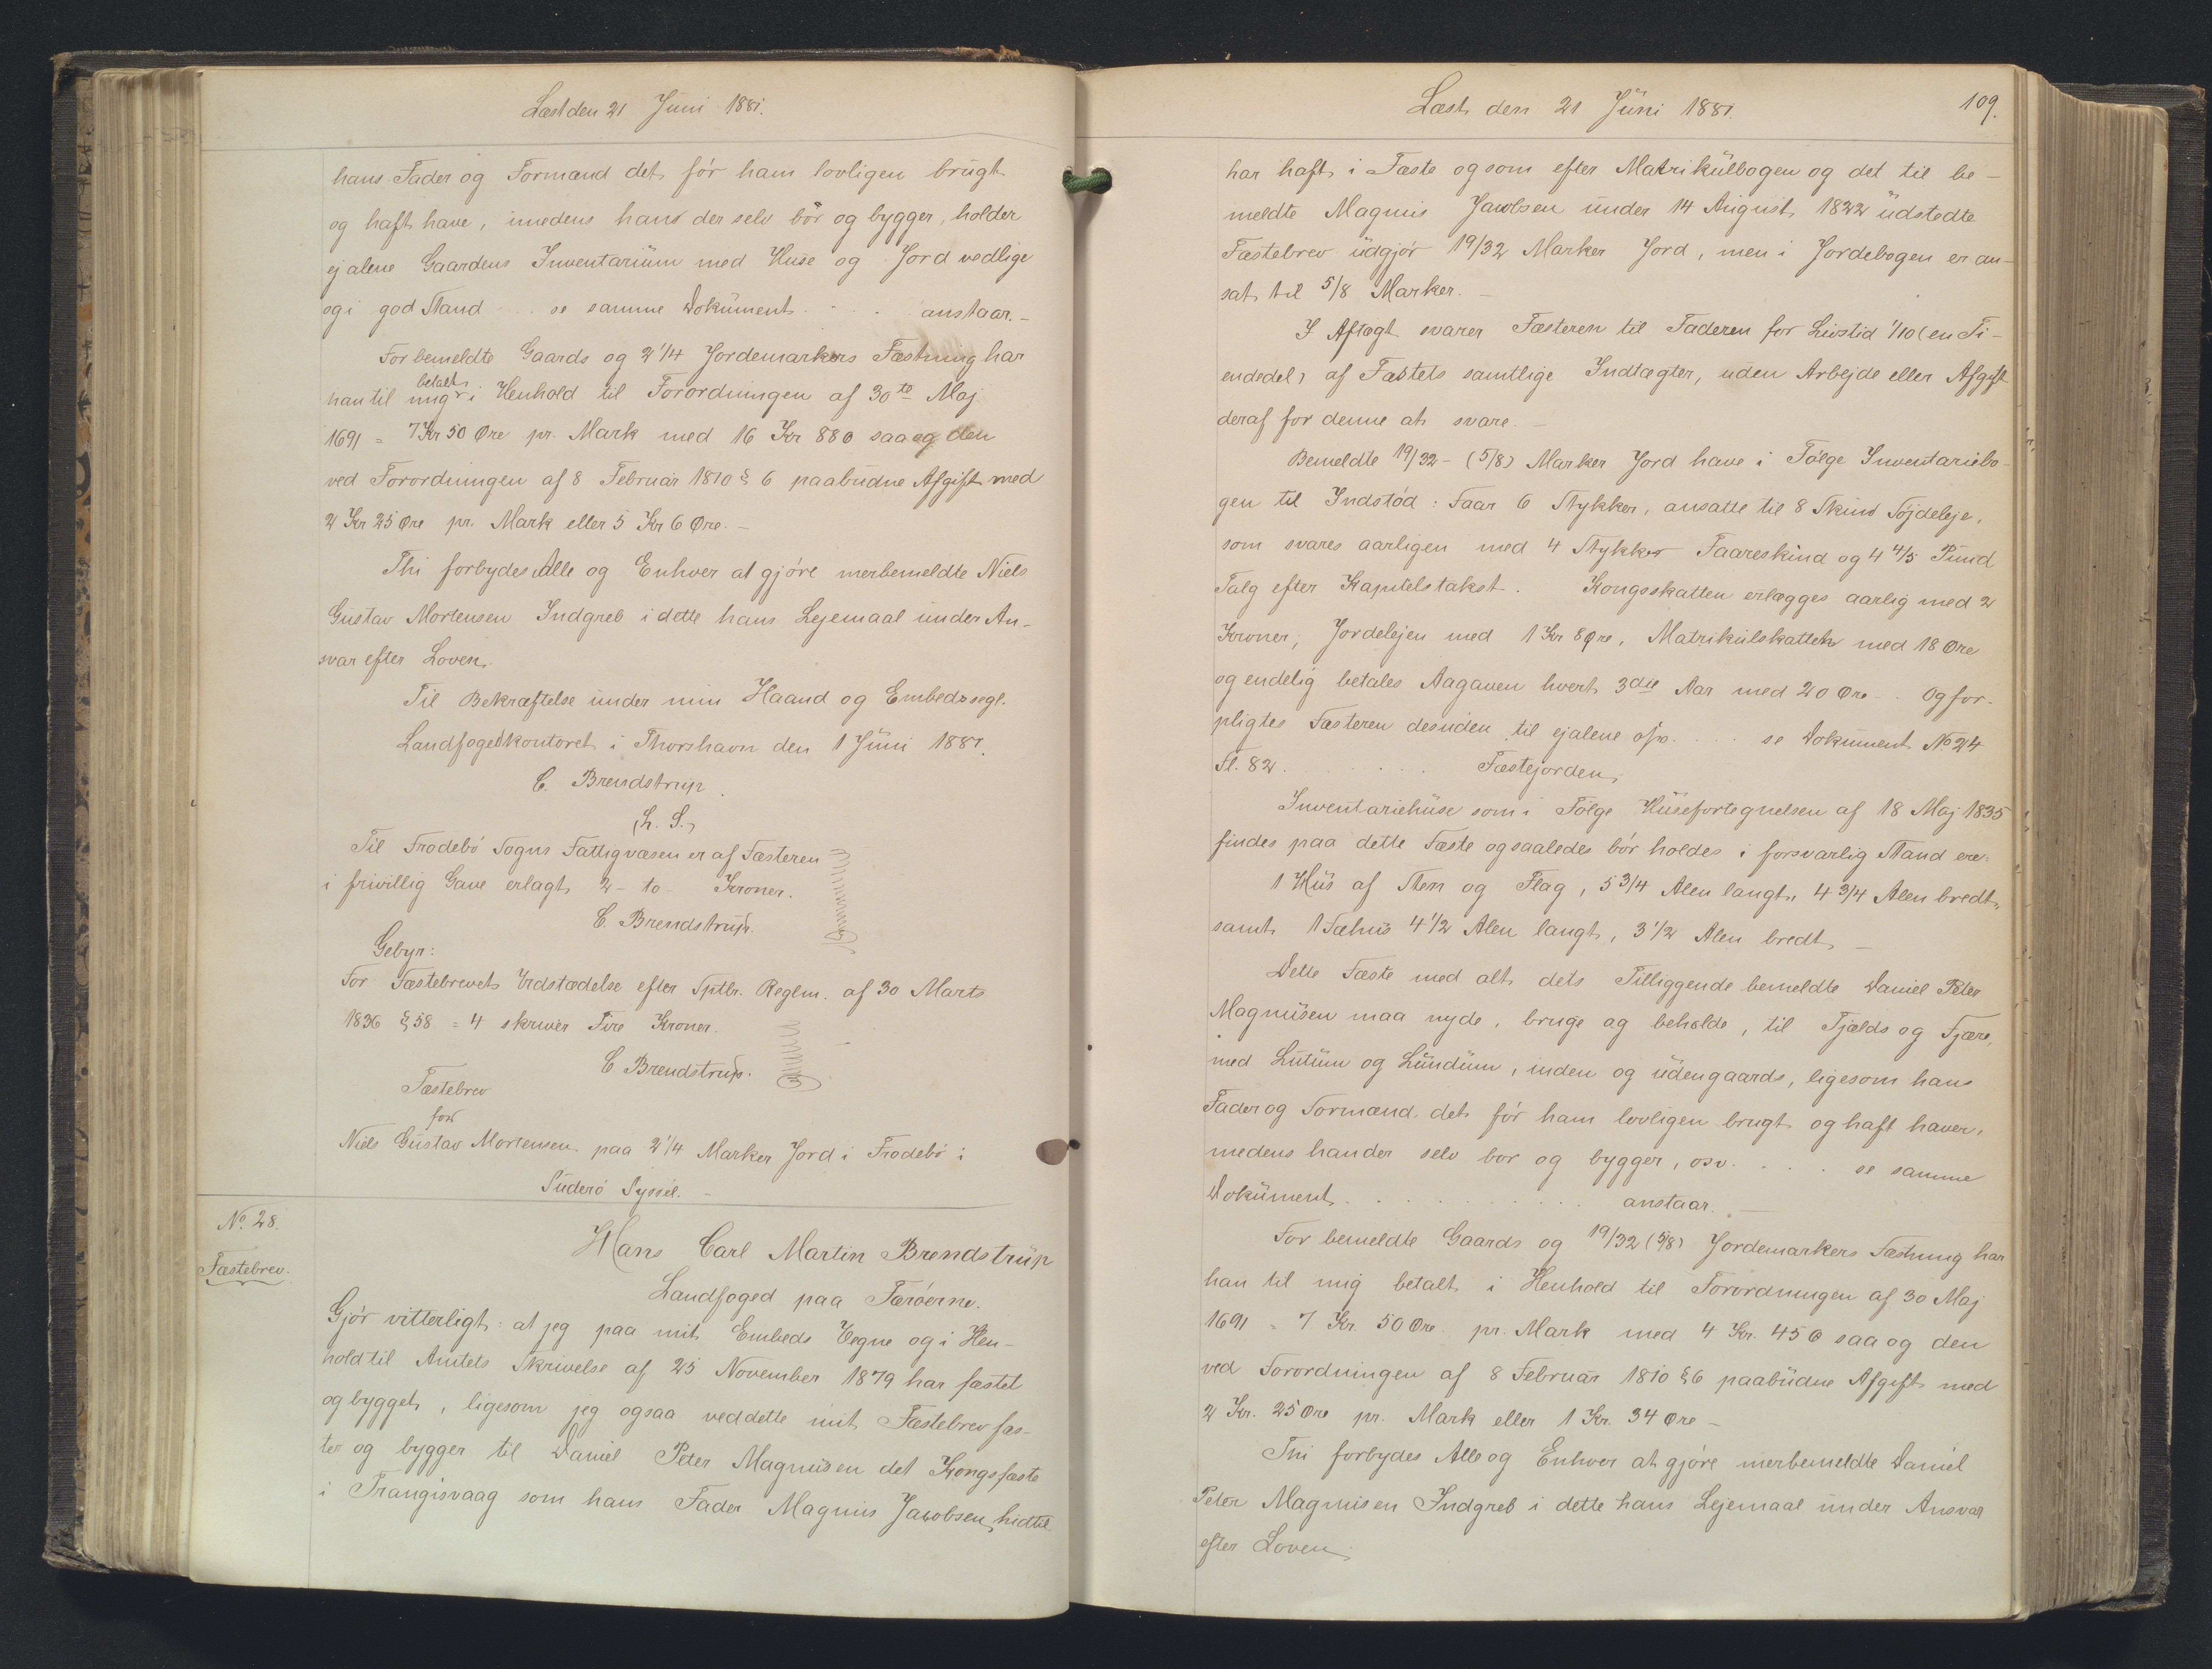 Læst den 21 Juni 1881.
hans Fader og Formænd det før ham lovligen brugt
og haft have, imedens hans der selv bor og bygger, holder
ej alene Gaardens Inventarium med Huse og Jord vedlige
og i god Stand . . se samme Dokument . . . anstaar. -
For bemeldte Gaards og 2 1/4 Jordemarkers Fæstning har
betalt
han til mig i Henhold til Forordningen af 30te Maj
1691 = 7 Kr 50 Øre pr. Mark med 16 Kr 88 Ø saa og den
ved Forordningen af 8 Februar 1810 § 6 paabudne Afgift med
2 Kr 25 Øre pr. Mark eller 5 Kr 6 Øre. -
Thi forbydes Alle og Enhver at gjøre merbemeldte Niels
Gustav Mortensen Indgreb i dette hans Lejemaal under An-
svar efter Loven.
Til Bekræftelse under min Haand og Embedssegl.
Landfogedkontoret i Thorshavn den 1 Juni 1881.
C. Brendstrup.
(L. S.)
Til Frodebø Sogns Fattigvæsen er af Fæsteren
i frivillig Gave erlagt 2 - to - Kroner.
C. Brendstrup.
Gebyr:
For Fæstebrevets Udstædelse efter Sptlr. Reglm. af 30 Marts
1836 § 58 = 4 skriver Fire Kroner.
C Brendstrup.
Fæstebrev
for
Niels Gustav Mortensen paa 2 1/4 Marker Jord i Frodebø i
Suderø Syssel. -
No. 28.
Fæstebrev.
Hans Carl Martin Brendstrup
Landfoged paa Færøerne.
Gjør vitterligt: at jeg paa mit Embeds Vegne og i Hen-
hold til Amtets Skrivelse af 25 November 1879 har fæstet
og bygget, ligesom jeg ogsaa ved dette mit Fæstebrev fæs-
ter og bygger til Daniel Peter Magnusen det Kongsfæste
i Trangisvaag som hans Fader Magnus Jacobsen hidtil
Læst den 21 Juni 1881. 109.
har haft i Fæste og som efter Matrikulbogen og det til be-
meldte Magnus Jacobsen under 14 August 1822 udstedte
Fæstebrev udgjør 19/32 Marker Jord, men i Jordebogen er an-
sat til 5/8 Marker. -
I Aftægt svarer Fæsteren til Faderen for Livstid 1/10 (en Ti-
endedel) af Fæstets samtlige Indtægter, uden Arbejde eller Afgift
deraf for denne at svare. -
Bemeldte 19/32 - (5/8) Marker Jord have i Følge Inventariebo-
gen til Indstød: Faar 6 Stykker, ansatte til 8 Skind Søjdeleje,
som svares aarligen med 4 Stykker Faareskind og 4 4/5 Pund
Talg efter Kapitelstakst. Kongsskatten erlægges aarlig med 2
Kroner, Jordelejen med 1 Kr 8 Øre, Matrikulskatten med 18 Øre
og endelig betales Aagaven hvert 3die Aar med 20 Øre - . Og for-
pligtes Fæsteren desuden til ejalene osv. . . . se Dokument No 24
Fl. 82. . . . . . Fæstejorden.
Inventariehuse som i Følge Husefortegnelsen af 18 Maj 1835
findes paa dette Fæste og saaledes bør holdes i forsvarlig Stand ere:
1 Hus af Sten og Flag, 5 3/4 Alen langt, 4 3/4 Alen bredt,
samt 1 Fæhus 4 1/2 Alen langt, 3 1/2 Alen bredt -
Dette Fæste med alt dets Tilliggende bemeldte Daniel Peter
Magnusen maa nyde, bruge og beholde, til Fjælds og Fjære,
med Lutum og Lundum, inden og udengaards, ligesom hans
Fader og Formænd det før ham lovligen brugt og haft haver,
medens han der selv bor og bygger, osv. . . . . se samme
Dokument . . . . . . . . . anstaar. -
For bemeldte Gaards og 19/32 (5/8) Jordemarkers Fæstning har
han til mig betalt i Henhold til Forordningen af 30 Maj
1691 = 7 Kr. 50 Øre pr. Mark med 4 Kr. 45 Ø saa og den
ved Forordningen af 8 Februar 1810 § 6 paabudne Afgift med
2 Kr. 25 Øre pr. Mark eller 1 Kr. 34 Øre -
Thi forbydes Alle og Enhver at gjøre merbemeldte Daniel
Peter Magnusen Indgreb i dette hans Lejemaal under Ansvar
efter Loven.